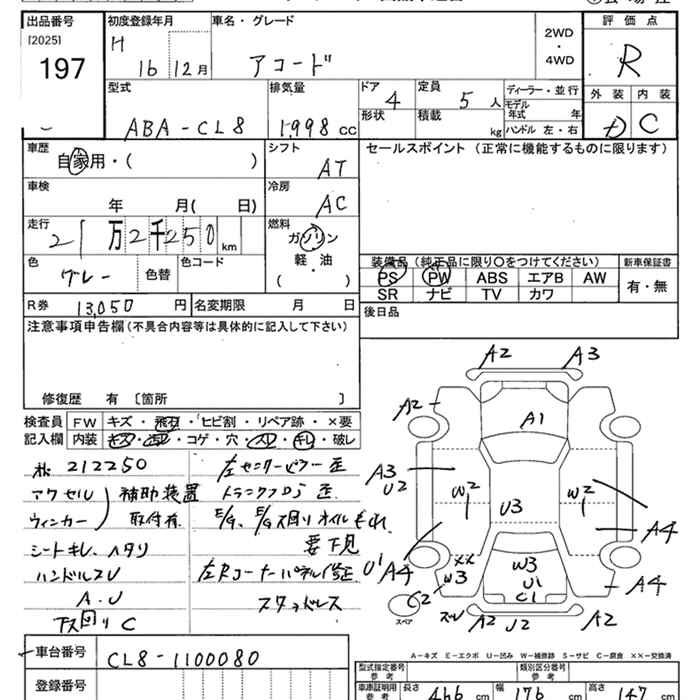 出品番号 初度登録年月 車名・グレード 評価点
[2025] H 2WD
197 16 12月 アコード ・ R
4WD
型式 排気量 ドア 定員 ディーラー・並行 外装 内装
4 5人 モデル年式 年
ABA-CL8 1,998cc 形状 積載 kg ハンドル 左・右 D C
車歴 シフト セールスポイント (正常に機能するものに限ります)
自家用・( ) AT
車検 冷房
年 月( 日) AC
走行 燃料
21万2千250km ガソリン
色 色替 色コード 軽・油 装備品 (純正品に限り○をつけてください) 新車保証書
グレー ( ) PS PW ABS エアB AW 有・無
SR ナビ TV カワ
R券 13,050円 名変期限 月 日 後日品
注意事項申告欄(不具合内容等は具体的に記入して下さい)
修復歴 有 〔箇所 〕
検査員 FW キズ・飛石・ヒビ割・リペア跡・×要
記入欄 内装 キズ・汚れ・コゲ・穴・スレ・キレ・破レ
212250 左センターピラー歪
アクセル 補助装置 トランクフロア歪
ウィンカー 取付有 E/G、E/G下回りオイルもれ
シートキレ、ヘタリ 要下見
ハンドルスレ 左Rコーナーパネル修正
A.U スタッドレス
下回りC
A2 A3
A2 A1
A3 U2 W2 U3 W2
A4
U1 A4 XX W3 W3 U1 C1 A4
スペア C2 ズレ A2 J2 A2
A-キズ E-エクボ U-凹み W-補修跡 S-サビ C-腐食 XX-交換済
車台番号 CL8-1100080
型式指定番号 参考 類別区分番号 参考
登録番号 車庫証明用 参考 長さ 466cm 幅 176cm 高さ 147cm